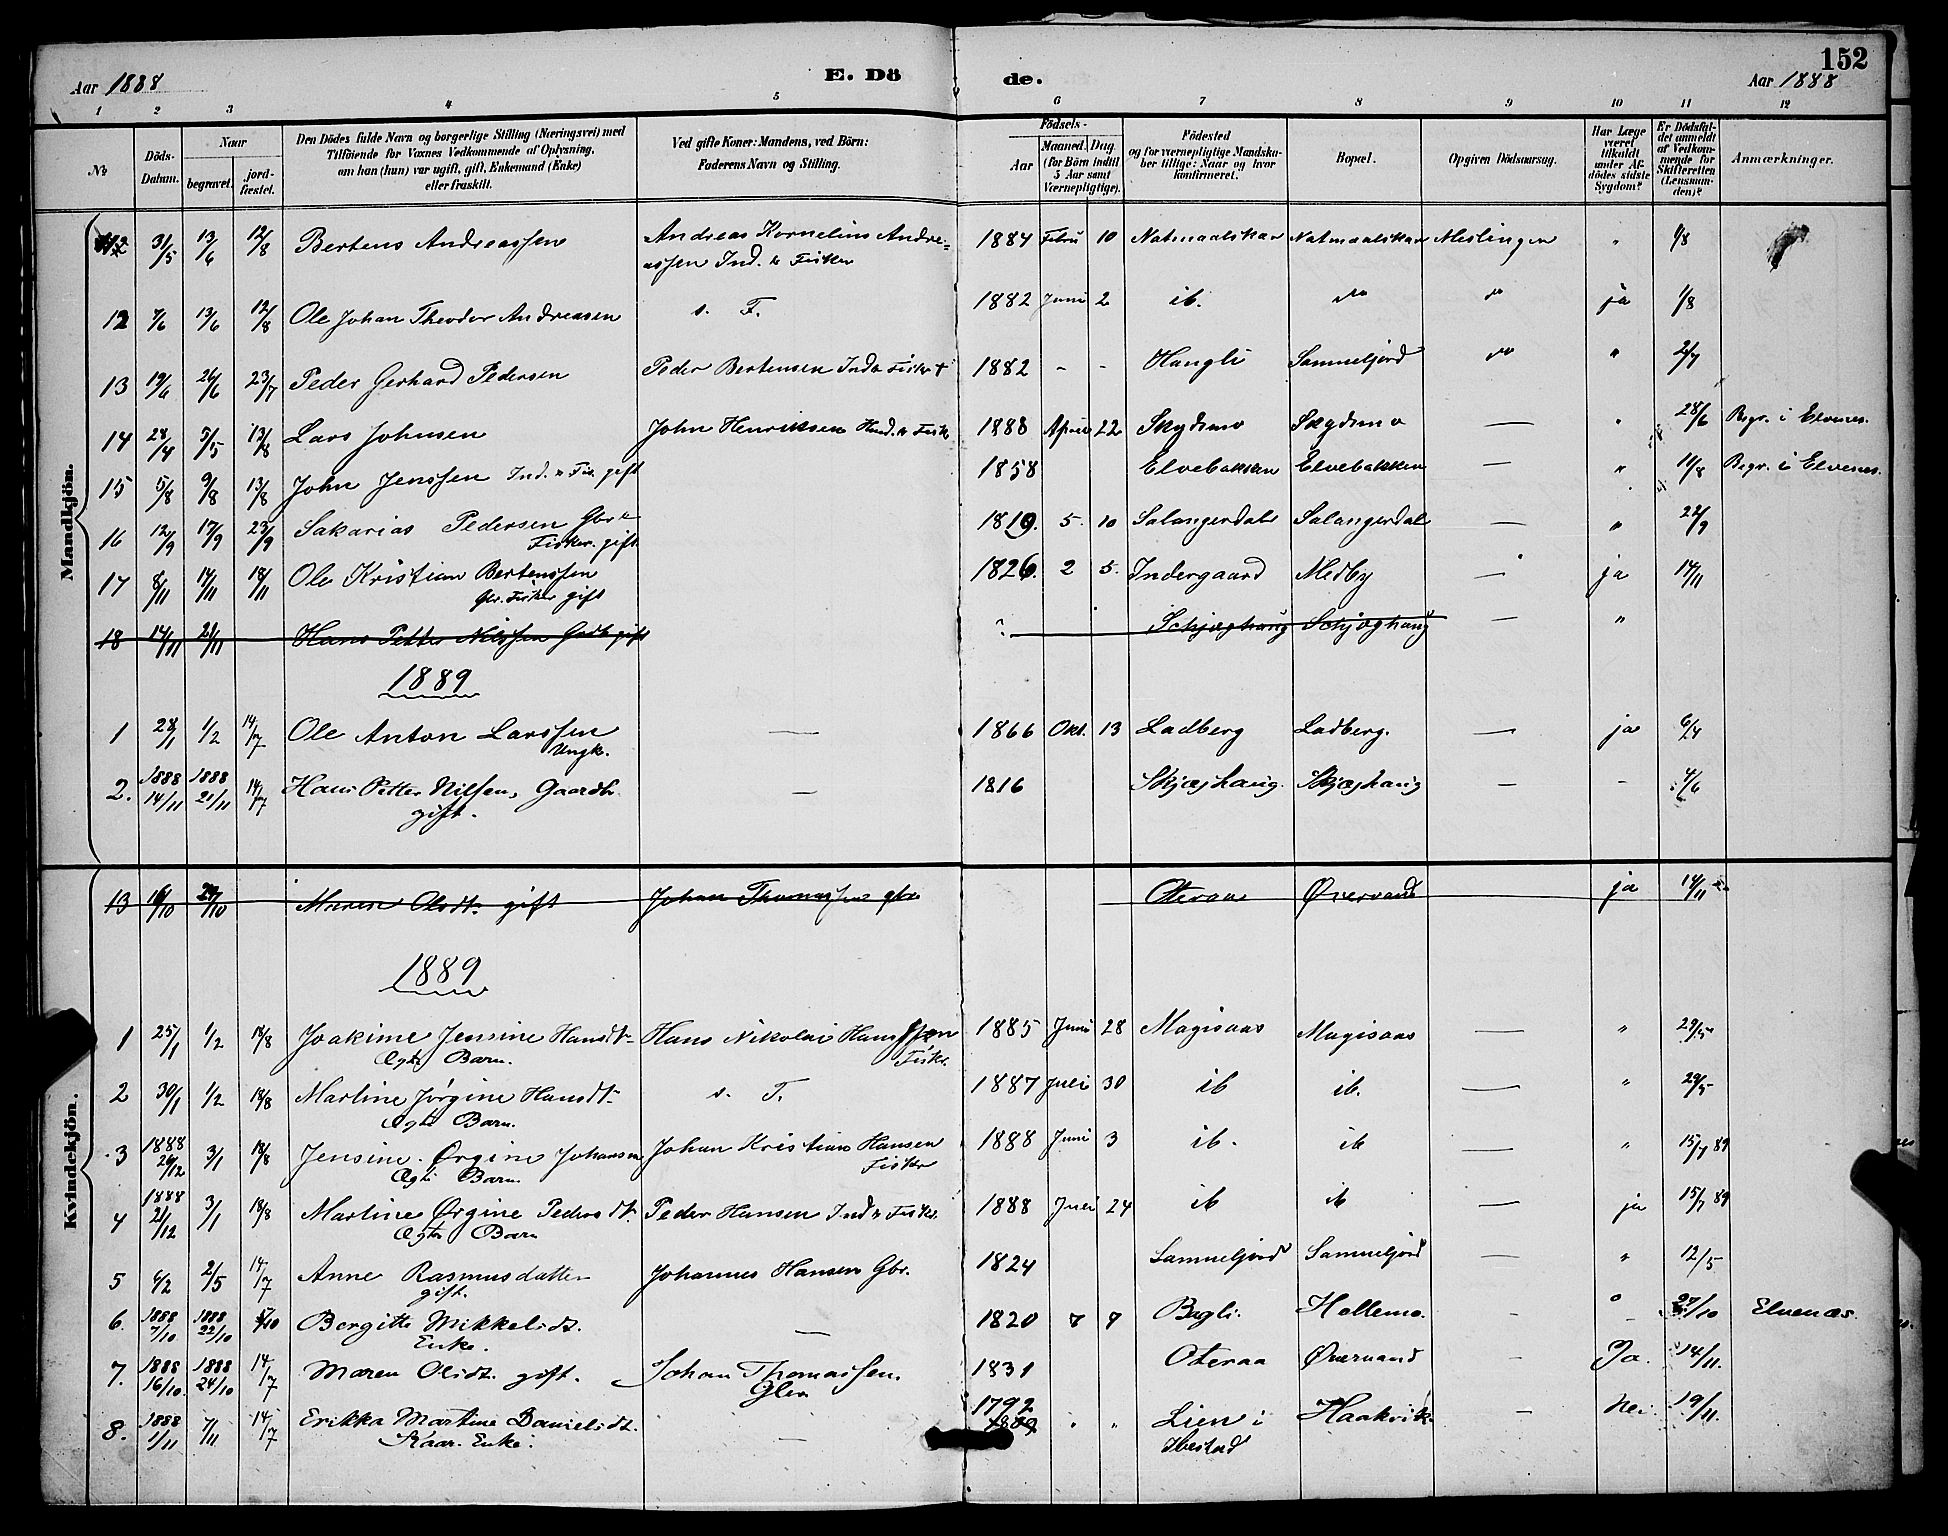 152
Aar 1888 E. Dö de. Aar 1888
1 2 3 4 5 6 7 8 9 10 11 12
№
Döds-Datum.
Naar
begravet. jordfæstet.
Den Dödes fulde Navn og borgerlige Stilling (Næringsvei) med Tilföiende for Voxnes Vedkommende af Oplysning, om han (hun) var ugift, gift, Enkemand (Enke) eller fraskilt.
Ved gifte Koner: Mandens, ved Börn: Faderens Navn og Stilling.
Födsels-
Aar Maaned. Dag. (for Börn indtil 5 Aar samt Værnepligtige).
Födested og for værnepligtige Mandskaber tillige: Naar og hvor konfirmeret.
Bopæl.
Opgiven Dödsaarsag.
Har Læge været tilkaldt under Afdödes sidste Sygdom?
Er Dödsfaldet anmeldt af Vedkommende for Skifteretten (Lensmanden)?
Anmærkninger.
Mandkjön.
31/5 13/6 12/8 Bertens Andreassen Andreas Kornelius Andre- 1884 Febru 10 Natmaalskar Natmaalskar Meslinger " 1/8
assen Ind. & Fisker
12 7/6 13/6 12/8 Ole Johan Theodor Andreasen s. F. 1882 Juni 2 ib. " " ja 1/8
13 19/6 26/6 23/7 Peder Gerhard Pedersen Peder Bertensen Ind & Fisker + 1882 - - Hangli Sammeljord " " 2/7
14 28/4 5/5 13/8 Lars Johnsen John Henriksen Huusm. & Fisk 1888 April 22 Skydsmo Skydsmo — " 28/6 Begr. i Elvenes.
15 5/8 9/8 13/8 John Jenssen Ind. & Fis. gift 1858 Elvebakken Elvebakken — " 11/8 Begr. i Elvenes.
16 12/9 17/9 23/9 Sakarias Pedersen Gbr & 1819. 5. 10 Salangerdal Salangerdal — " 22/9
Fisker. gift.
17 8/11 14/11 18/11 Ole Kristian Bertenssen 1826. 2 5. Indergaard Medby — ja 14/11
Gbr. Fisker gift
18 14/11 21/11 Hans Petter Nilssen Gadb gift Schjæghaug Schjæghaug — "
1889
1 28/1 1/2 14/7 Ole Anton Larssen — 1866 Okt. 13 Ladberg Ladberg. — ja 6/4
Ungk.
2. 1888 14/11 1888 21/11 14/7 Hans Petter Nilsen, Gaardbr — 1816 Skjæghaug. Skjæghaug — - 4/6
gift.
Kvindekjön.
13 16/10 24/10 Maren Olsdt. gift Johan Thomassen gbr Oteraa Øvervand ja 14/11
1889
1 25/1 1/2 18/8 Joakime Jensine Hansdt. Hans Nikolai Hanssen 1885 Juni 28 Magisaas Magisaas — " 29/5
Ægte Barn. Fisker
2 30/1 1/2 18/8 Martine Jørgine Hansdt. s. F. 1887 Juli 30 ib ib. — " 29/5
Ægte Barn.
3 1888 26/12 3/1 18/8 Jensine Ørgine Johansen Johan Kristian Hansen 1888 Juni 3 ib. ib — " 15/7 89
Ægte Barn Fisker
4 1888 21/12 3/1 18/8 Martine Ørgine Pedersdt. Peder Hansen Ind & Fisker. 1888 Juli 24 ib ib — ja 15/7 89
Ægte Barn
5 6/2 2/5 14/7 Anne Rasmusdatter Johannes Hansen Gbr. 1824 Sammeljord Sammeljord — " 12/5
gift.
6. 1888 7/10 1888 22/10 Bergitte Mikkelsdt. — 1820 7 7 Bagli. Hellemo. — 27/10 Elvenæs.
Enke.
7. 1888 16/10. 1888 24/10 14/7 Maren Olsdt. gift. Johan Thomassen. 1831 Oteraa Øvervand - Ja. 14/11.
Gbr
8. 1888 1/11 7/11 14/7 Erikka Martine Danielsdt. — 1792 " " Lien i Haakvik - Nei 19/11.
Kaar. Enke. Ibestad